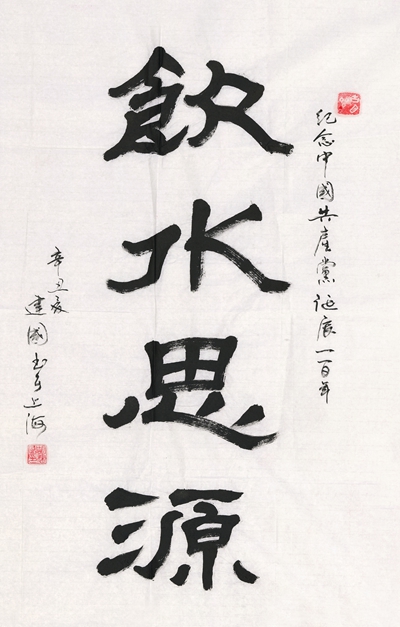 纪念中國共産黨诞辰一百年
飲水思源
辛丑夏
建國书于上海